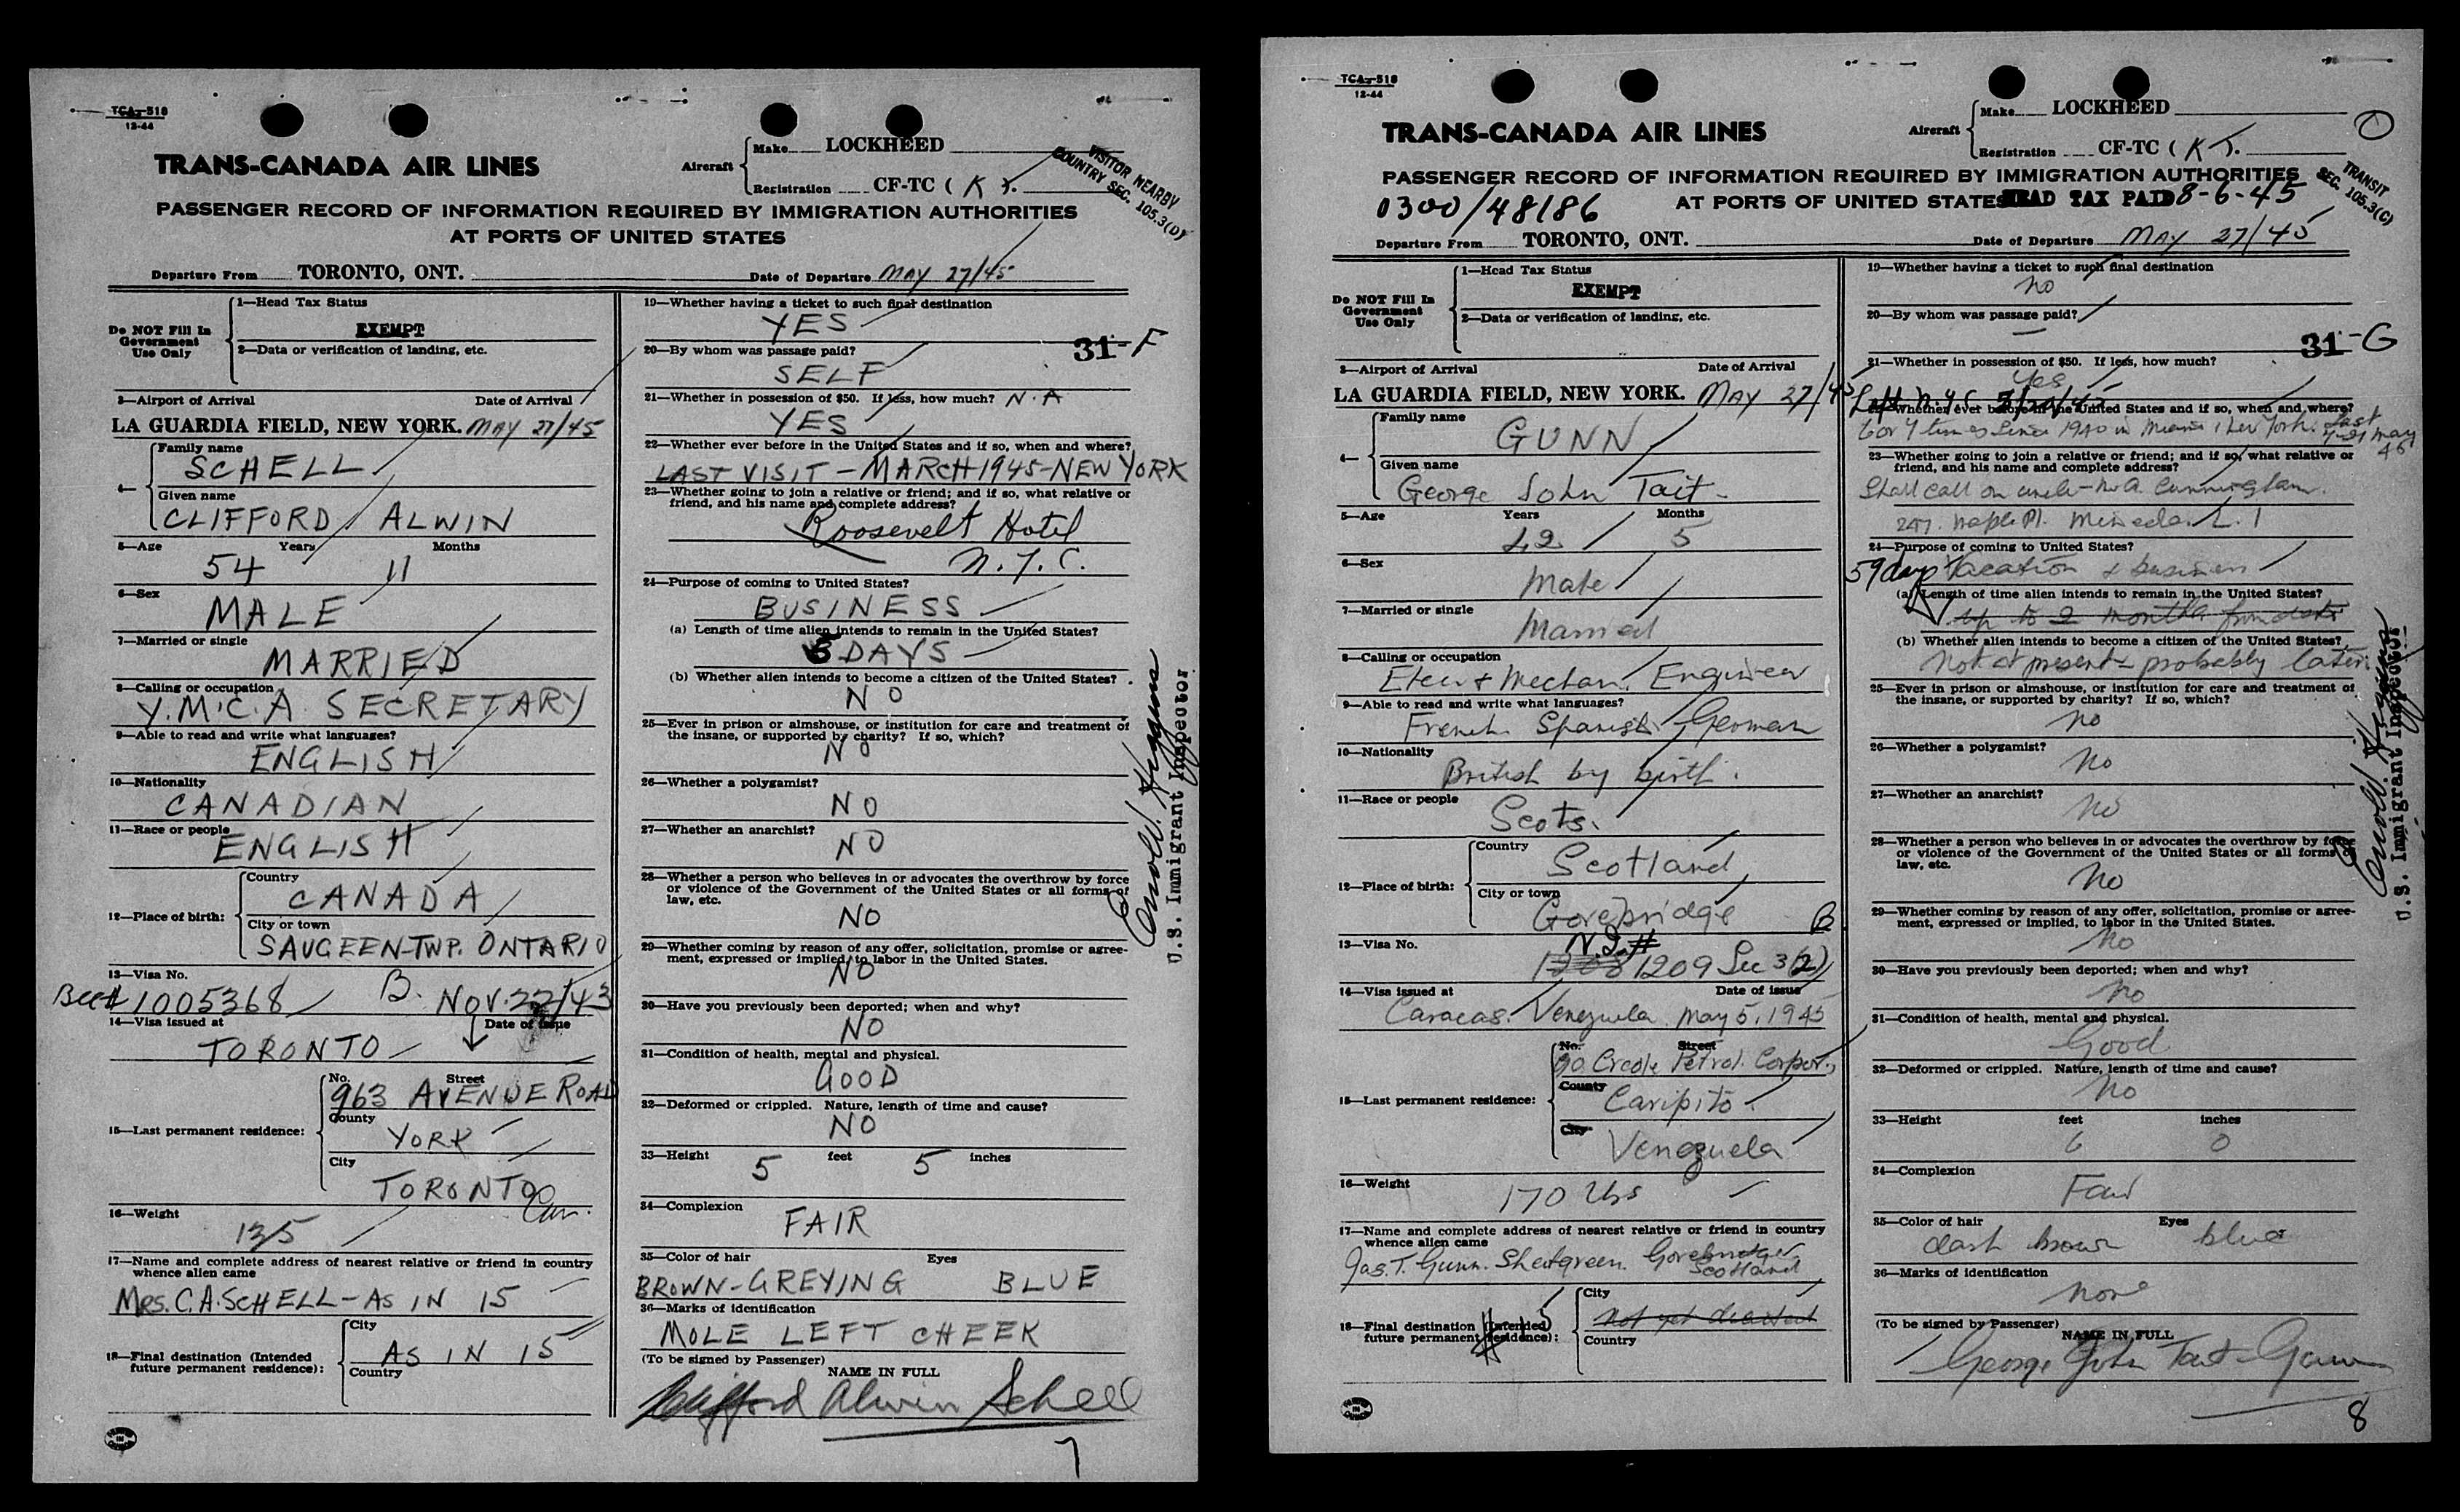 TCA-518
12-44
TRANS-CANADA AIR LINES
Aircraft
Make LOCKHEED
Registration CF-TC ( K ).
VISITOR NEARBY
COUNTRY SEC. 105.3(D)
PASSENGER RECORD OF INFORMATION REQUIRED BY IMMIGRATION AUTHORITIES
AT PORTS OF UNITED STATES
Departure From TORONTO, ONT. Date of Departure MAY 27/45
Do NOT Fill In
Government
Use Only
1—Head Tax Status
EXEMPT
2—Data or verification of landing, etc.
3—Airport of Arrival Date of Arrival
LA GUARDIA FIELD, NEW YORK. MAY 27/45
4—
Family name
SCHELL
Given name
CLIFFORD ALWIN
5—Age Years Months
54 11
6—Sex
MALE
7—Married or single
MARRIED
8—Calling or occupation
Y.M.C.A SECRETARY
9—Able to read and write what languages?
ENGLISH
10—Nationality
CANADIAN
11—Race or people
ENGLISH
12—Place of birth:
Country
CANADA
City or town
SAUGEEN-TWP. ONTARIO
13—Visa No.
1005368 B. NOV. 22/43
14—Visa issued at Date of issue
TORONTO
15—Last permanent residence:
No. Street
963 AVENUE ROAD
County
YORK
City
TORONTO
Can.
16—Weight
135
17—Name and complete address of nearest relative or friend in country
whence alien came
MRS. C.A. SCHELL - AS IN 15
18—Final destination (Intended
future permanent residence):
City
AS IN 15
Country
19—Whether having a ticket to such final destination
YES
31-F
20—By whom was passage paid?
SELF
21—Whether in possession of $50. If less, how much? N.A
YES
22—Whether ever before in the United States and if so, when and where?
LAST VISIT - MARCH 1945 - NEW YORK
23—Whether going to join a relative or friend; and if so, what relative or
friend, and his name and complete address?
Roosevelt Hotel
N.Y.C.
24—Purpose of coming to United States?
BUSINESS
(a) Length of time alien intends to remain in the United States?
DAYS
(b) Whether alien intends to become a citizen of the United States?
NO
25—Ever in prison or almshouse, or institution for care and treatment of
the insane, or supported by charity? If so, which?
NO
26—Whether a polygamist?
NO
27—Whether an anarchist?
NO
28—Whether a person who believes in or advocates the overthrow by force
or violence of the Government of the United States or all forms of
law, etc.
NO
29—Whether coming by reason of any offer, solicitation, promise or agree-
ment, expressed or implied, to labor in the United States.
NO
30—Have you previously been deported; when and why?
NO
31—Condition of health, mental and physical.
GOOD
32—Deformed or crippled. Nature, length of time and cause?
NO
33—Height 5 feet 5 inches
34—Complexion
FAIR
35—Color of hair Eyes
BROWN-GREYING BLUE
36—Marks of identification
MOLE LEFT CHEEK
(To be signed by Passenger)
NAME IN FULL
Clifford Alwin Schell
7
U.S. Immigrant Inspector
TCA-518
12-44
TRANS-CANADA AIR LINES
Aircraft
Make LOCKHEED
Registration CF-TC ( K ).
TRANSIT
SEC. 105.3(C)
PASSENGER RECORD OF INFORMATION REQUIRED BY IMMIGRATION AUTHORITIES
0300/48186 AT PORTS OF UNITED STATES HEAD TAX PAID 8-6-45
Departure From TORONTO, ONT. Date of Departure MAY 27/45
Do NOT Fill In
Government
Use Only
1—Head Tax Status
EXEMPT
2—Data or verification of landing, etc.
3—Airport of Arrival Date of Arrival
LA GUARDIA FIELD, NEW YORK. MAY 27/45
4—
Family name
GUNN
Given name
George John Tait
5—Age Years Months
42 5
6—Sex
Male
7—Married or single
Married
8—Calling or occupation
Elec & Mechan. Engineer
9—Able to read and write what languages?
French Spanish German
10—Nationality
British by birth.
11—Race or people
Scots.
12—Place of birth:
Country
Scotland
City or town
Gorebridge
13—Visa No.
1209 Sec 3(2)
14—Visa issued at Date of issue
Caracas. Venezuela. May 5. 1945
15—Last permanent residence:
No. Street
Creole Petrol. Corpor.
County
Caripito
City
Venezuela
16—Weight
170 lbs
17—Name and complete address of nearest relative or friend in country
whence alien came
Jas. T. Gunn. Gorebridge
Scotland
18—Final destination (Intended
future permanent residence):
City
Not yet decided
Country
19—Whether having a ticket to such final destination
No
20—By whom was passage paid?
—
31-G
21—Whether in possession of $50. If less, how much?
Yes
Left N.Y.C.
22—Whether ever before in the United States and if so, when and where?
6 or 7 times since 1940 in Miami & New York. last
May
45
23—Whether going to join a relative or friend; and if so, what relative or
friend, and his name and complete address?
Shall call on uncle - Cunningham.
Maple Pl. Mineola. L.I
24—Purpose of coming to United States?
59 days Vacation & business
(a) Length of time alien intends to remain in the United States?
up to 2 months from date
(b) Whether alien intends to become a citizen of the United States?
Not at present - probably later.
25—Ever in prison or almshouse, or institution for care and treatment of
the insane, or supported by charity? If so, which?
No
26—Whether a polygamist?
No
27—Whether an anarchist?
No
28—Whether a person who believes in or advocates the overthrow by force
or violence of the Government of the United States or all forms of
law, etc.
No
29—Whether coming by reason of any offer, solicitation, promise or agree-
ment, expressed or implied, to labor in the United States.
No
30—Have you previously been deported; when and why?
No
31—Condition of health, mental and physical.
Good
32—Deformed or crippled. Nature, length of time and cause?
No
33—Height feet inches
6 0
34—Complexion
Fair
35—Color of hair Eyes
dark brown blue
36—Marks of identification
None
(To be signed by Passenger)
NAME IN FULL
George John Tait Gunn
8
U.S. Immigrant Inspector